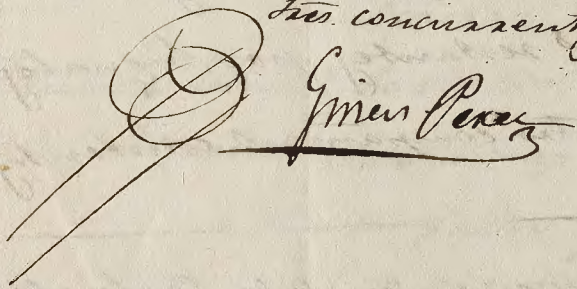 tres concurrent
Gines Perez